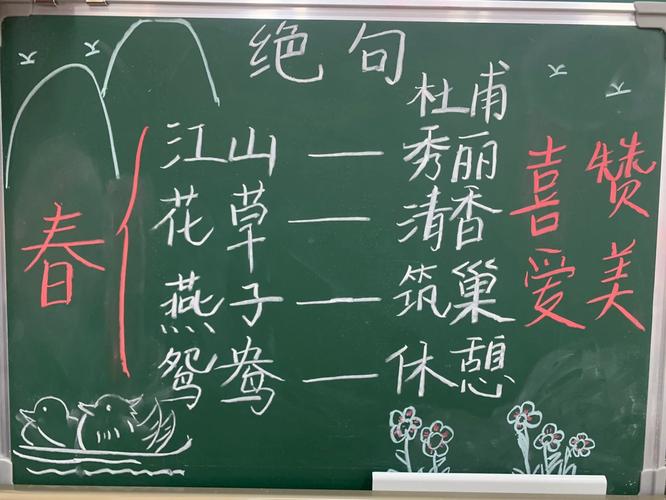 绝句
杜甫
春
江山—秀丽
花草—清香
燕子—筑巢
鸳鸯—休憩
喜爱
赞美